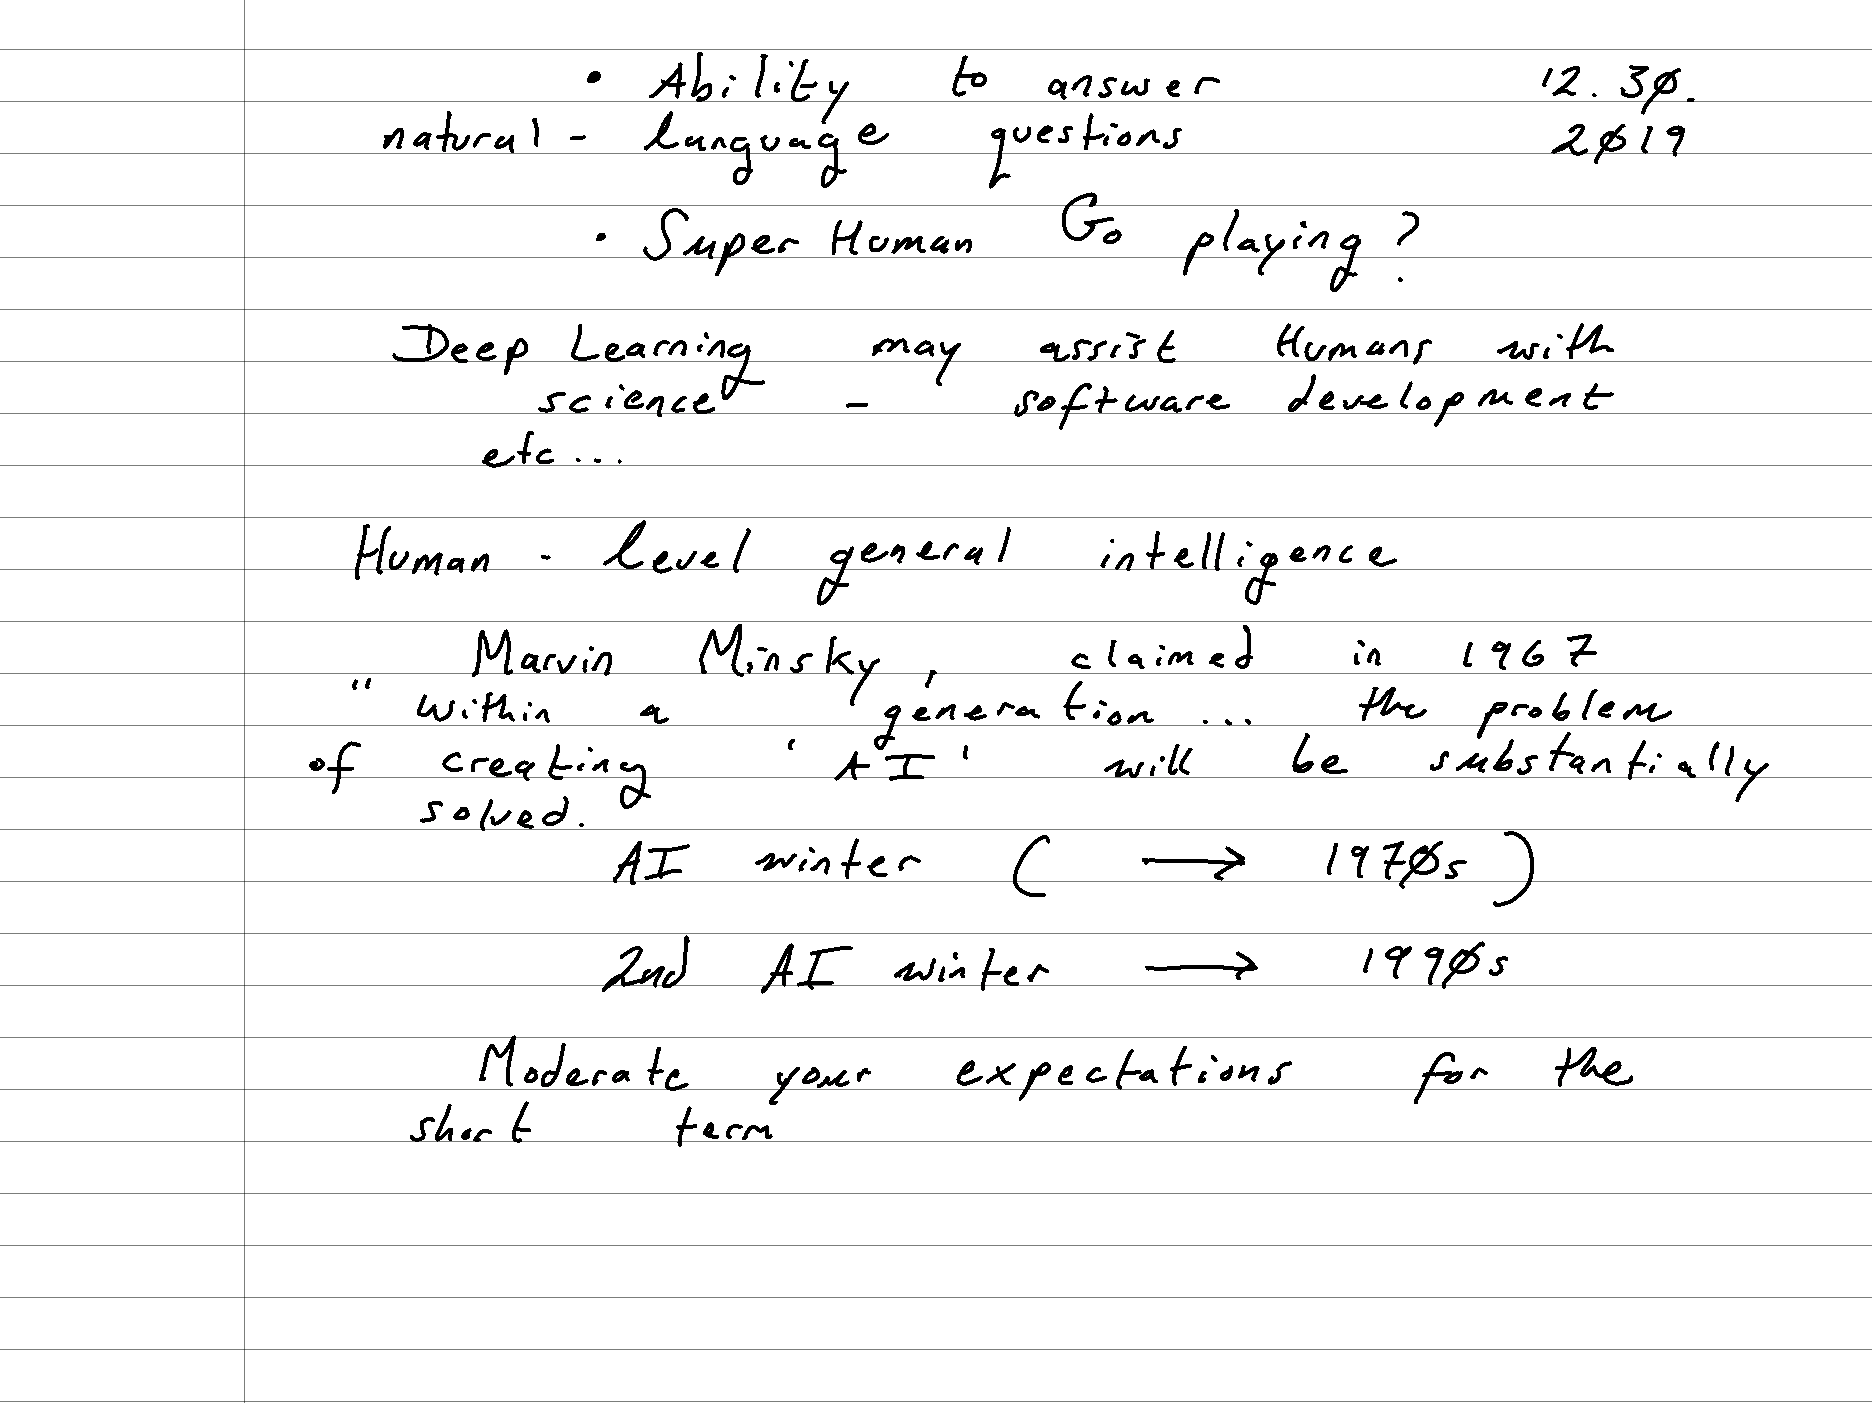 • Ability to answer 12.30.
natural - language questions 2019
• Super Human Go playing?
Deep Learning may assist Humans with
science - software development
etc...
Human - level general intelligence
Marvin Minsky, claimed in 1967
" within a generation ... the problem
of creating 'AI' will be substantially
solved.
AI winter ( → 1970s )
2nd AI winter → 1990s
Moderate your expectations for the
short term